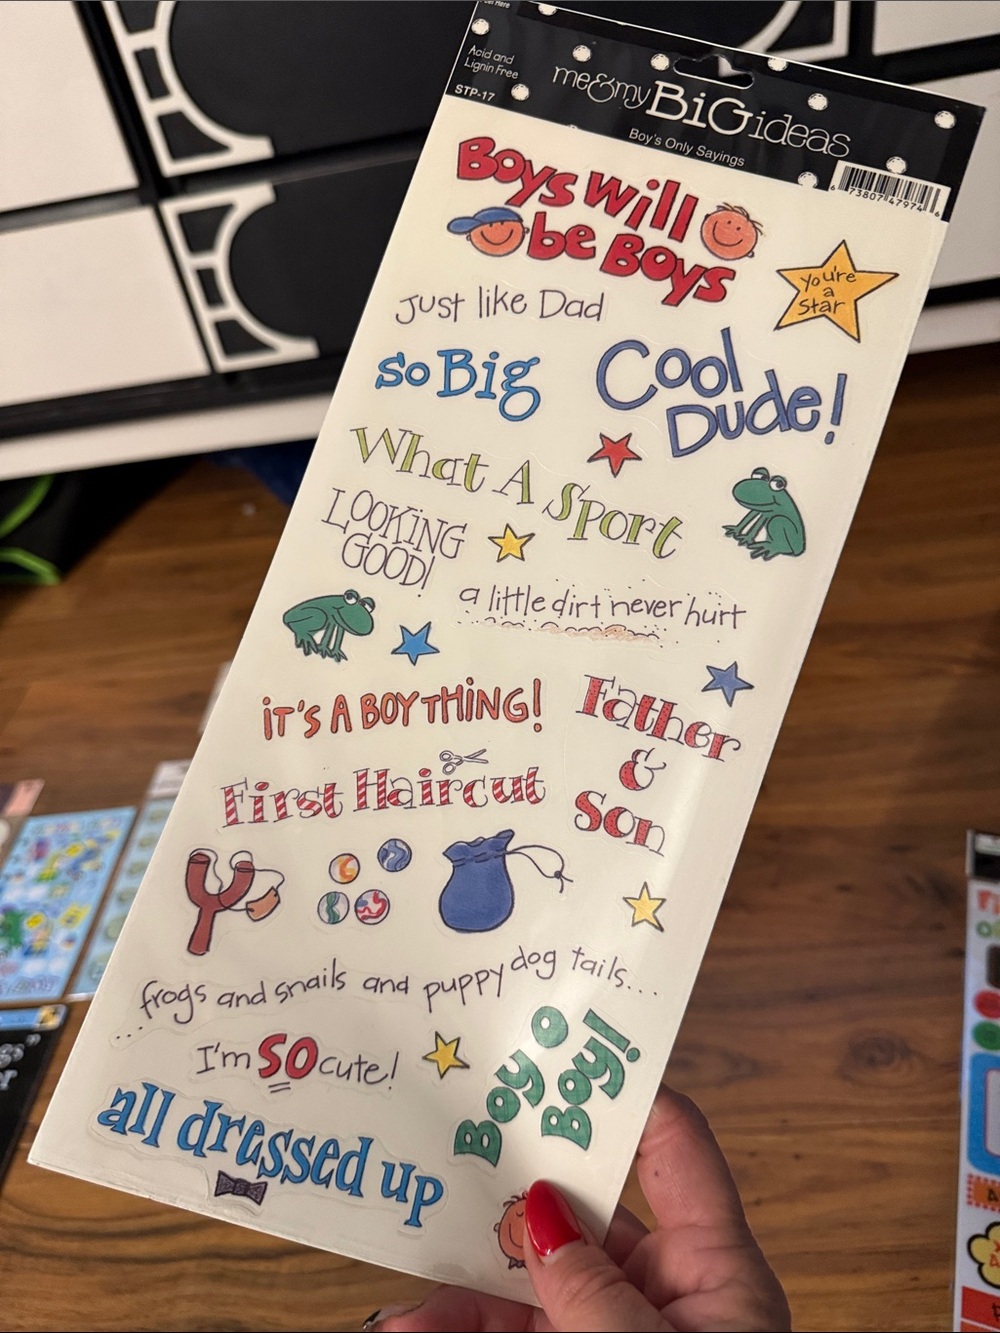 Acid and
Lignin Free
STP-17
me&my BiG ideas
Boy's Only Sayings
6 73807 47974 6
Boys will
be Boys
You're
a
Star
Just like Dad
So Big
Cool
Dude!
What A Sport
LOOKING
GOOD!
a little dirt never hurt
iT'S A BOY THiNG!
Father
&
Son
First Haircut
...frogs and snails and puppy dog tails...
I'm SO cute!
Boy O
Boy!
all dressed up